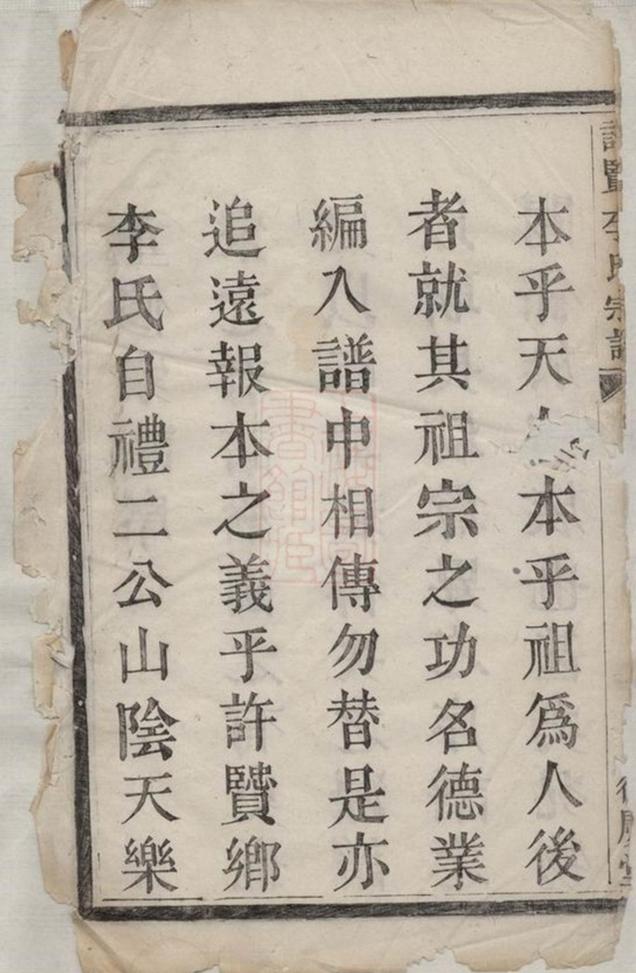 許賢李氏宗譜
本乎天人本乎祖爲人後
者就其祖宗之功名德業
編入譜中相傳勿替是亦
追遠報本之義乎許賢鄉
李氏自禮二公山陰天樂